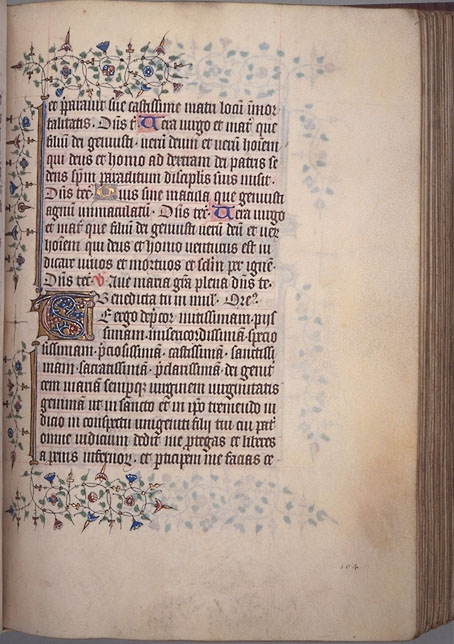 et p̄parauit sue castissime matri locū īmor
talitatis. Dn̄s te. Aera uirgo et mat̄ que
filium dei genuisti. uerū deum et uerū hoīem
qui deus et homo ad dexteram dei patris se
dens sp̄m paraclitum disciplis suis misit.
Dn̄s tec̄. Ouis sine macula que genuisti
agnū immaculatū. Dn̄s tec̄. Aera uirgo
et mat̄ que filiū dei genuisti. uerū deū et uer
hoīem qui deus et homo uenturus est iu
dicare uiuos et mortuos et sclm̄ per ignē.
Dn̄s tec̄. V Aue maria grā plena dn̄s te.
Benedicta tu in mul. Ore.
Te ergo dep̄cor mitissimam pijs
simam. misericordissimā. specio
sissimam. p̄ciosissimā. castissimā. sanctissi
mam. sacratissimā. p̄clarissimā. dei genit̄
cem mariā semperqꝫ uirginem. uirginitatis
geminā ut in sancto et in ip̄o tremendo iu
dicio in conspectu unigeniti filij tui cui pat̄
omne iudicium dedit me ꝓtegas et liberes
a penis infernor̄. et p̄ticipem me facias ce
104